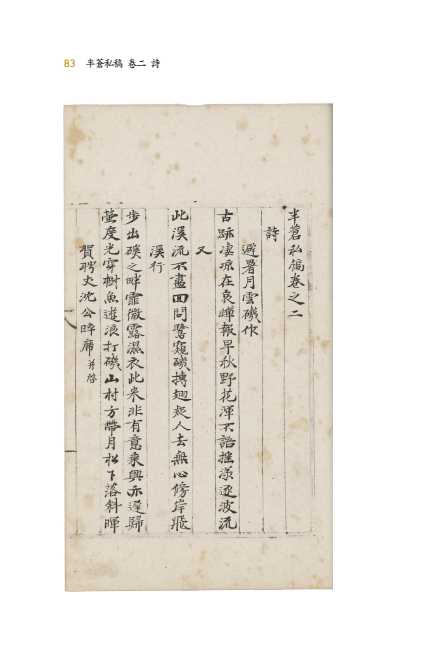 83 半蒼私稿 卷二 詩
半蒼私稿卷之二
詩
避暑月雲磯作
古跡凄凉在哀蟬報早秋野花渾不語搖漾逐波流
又
此溪流不盡回問鷺窺磯搏翅趁人去無心傍岸飛
溪行
步出磯之畔霏微露濕衣此來非有意乘興亦遲歸
螢度光穿樹魚遊浪打磯山村方帶月松下落斜暉
賀聘丈沈公晬席 并啓